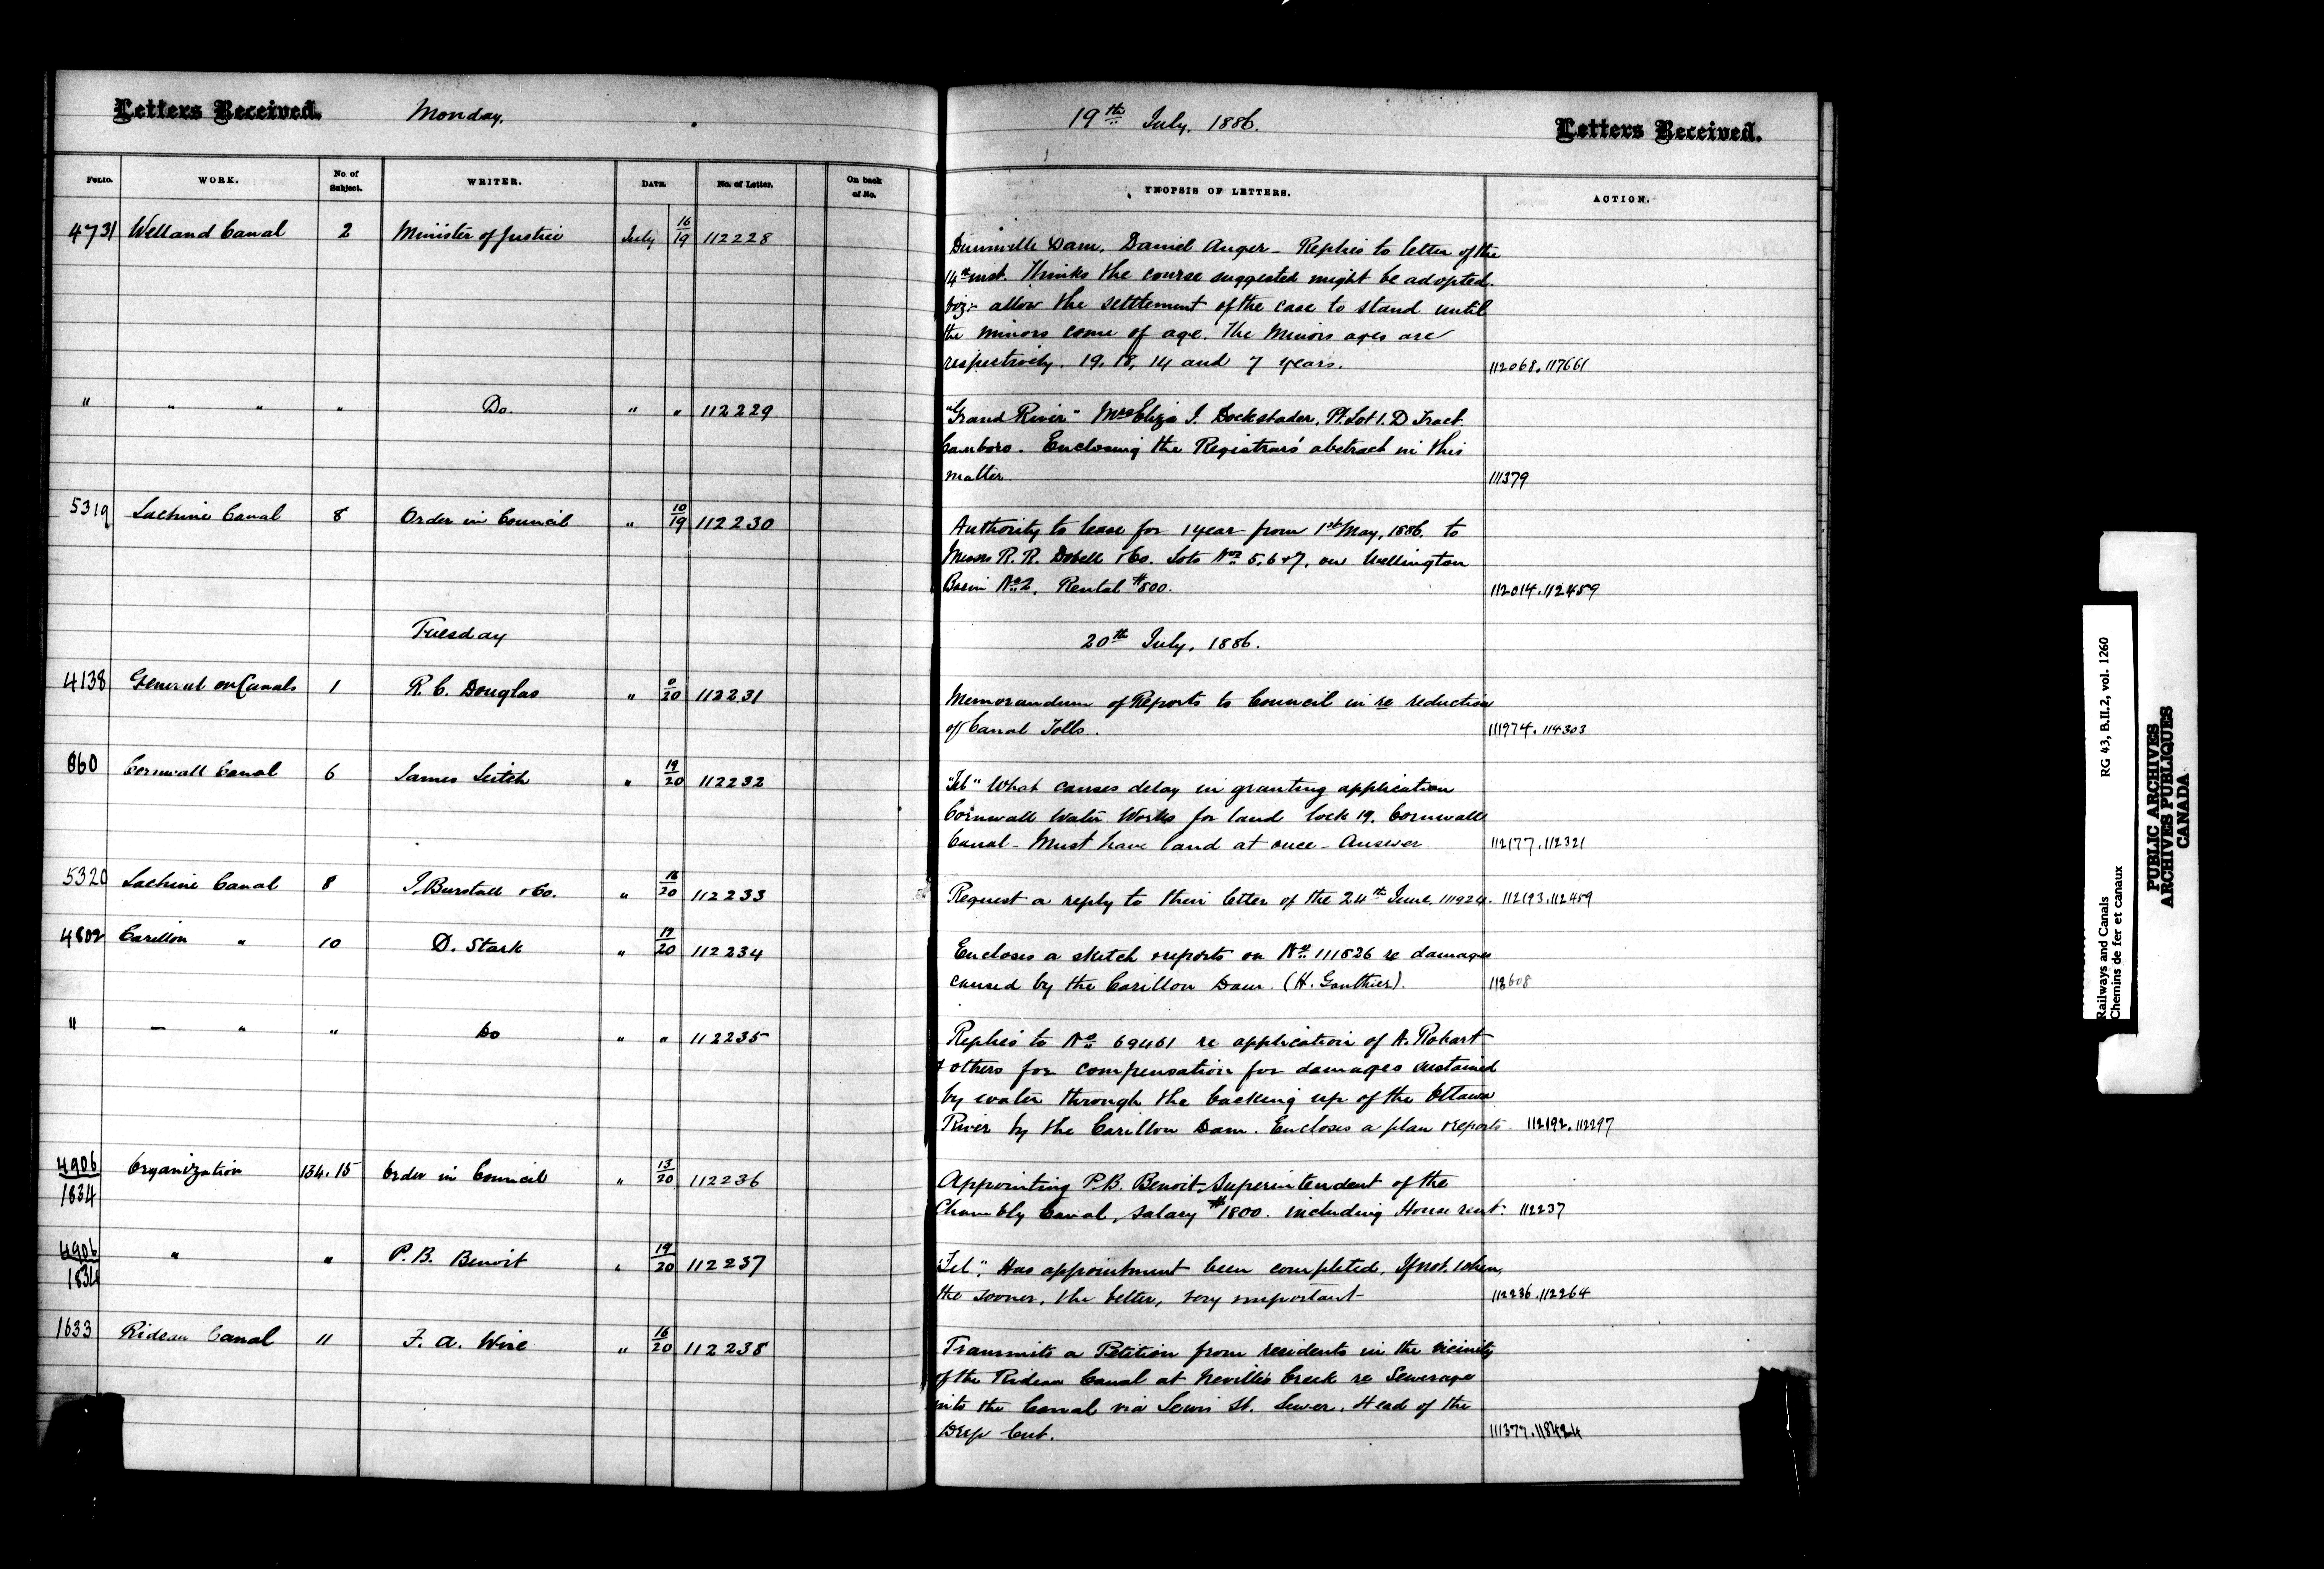 Letters Received.
Monday,
19th July, 1886.
Letters Received.
FOLIO. WORK. No. of Subject. WRITER. DATE. No. of Letter. On back of No. SYNOPSIS OF LETTERS. ACTION.
4731 Welland Canal 2 Minister of Justice July 16/19 112228
Dunnville Dam, Daniel Auger - Replies to letter of the
14th inst. Thinks the course suggested might be adopted.
viz:- allow the settlement of the case to stand until
the minors come of age. The Minors ages are
respectively, 19, 18, 14 and 7 years. 112068. 117661
" " " " Do. " " 112229
"Grand River" Mrs Eliza J. Dockstader, Pt. Lot 1. D Tract.
Canboro. Enclosing the Registrars' abstract in this
matter. 111379
5319 Lachine Canal 8 Order in Council " 10/19 112230
Authority to lease for 1 year from 1st May, 1886. to
Messrs R. R. Dobell & Co. Lots Nos 5.6&7, on Wellington
Basin No. 2. Rental $800. 112014. 112459
Tuesday
20th July, 1886.
4138 General on Canals 1 R. C. Douglas " 0/20 112231
Memorandum of Reports to Council in re reduction
of Canal Tolls. 111974. 114303
860 Cornwall Canal 6 James Leitch " 19/20 112232
"Tel" What causes delay in granting application
Cornwall Water Works for land lock 19. Cornwall
Canal - Must have land at once - Answer 112177. 112321
5320 Lachine Canal 8 J. Burstall & Co. " 16/20 112233
Request a reply to their letter of the 24th June, 111924. 112193. 112459
4802 Carillon " 10 D. Stark " 19/20 112234
Encloses a sketch & reports on No. 111826 re damages
caused by the Carillon Dam. (H. Gauthier). 112608
" — " " Do " " 112235
Replies to No. 69461 re application of A. Robart
& others for compensation for damages sustained
by water through the backing up of the Ottawa
River by the Carillon Dam. Encloses a plan & reports 112192. 112297
4906/1834 Organization 134.15 Order in Council " 13/20 112236
Appointing P.B. Benoit, Superintendent of the
Chambly Canal, Salary $1800. including House rent. 112237
4906/1834 " " P. B. Benoit " 19/20 112237
"Tel", Has appointment been completed, If not, when,
the sooner, the better, very important 112236. 112264
1633 Rideau Canal 11 F. A. Wise " 16/20 112238
Transmits a Petition from residents in the vicinity
of the Rideau Canal at Nevilles Creek re Sewerage
into the Canal via Lewis St. Sewer, Head of the
Deep Cut. 111377. 118424
Railways and Canals RG 43, B.II.2, vol. 1260
Chemins de fer et canaux
PUBLIC ARCHIVES
ARCHIVES PUBLIQUES
CANADA